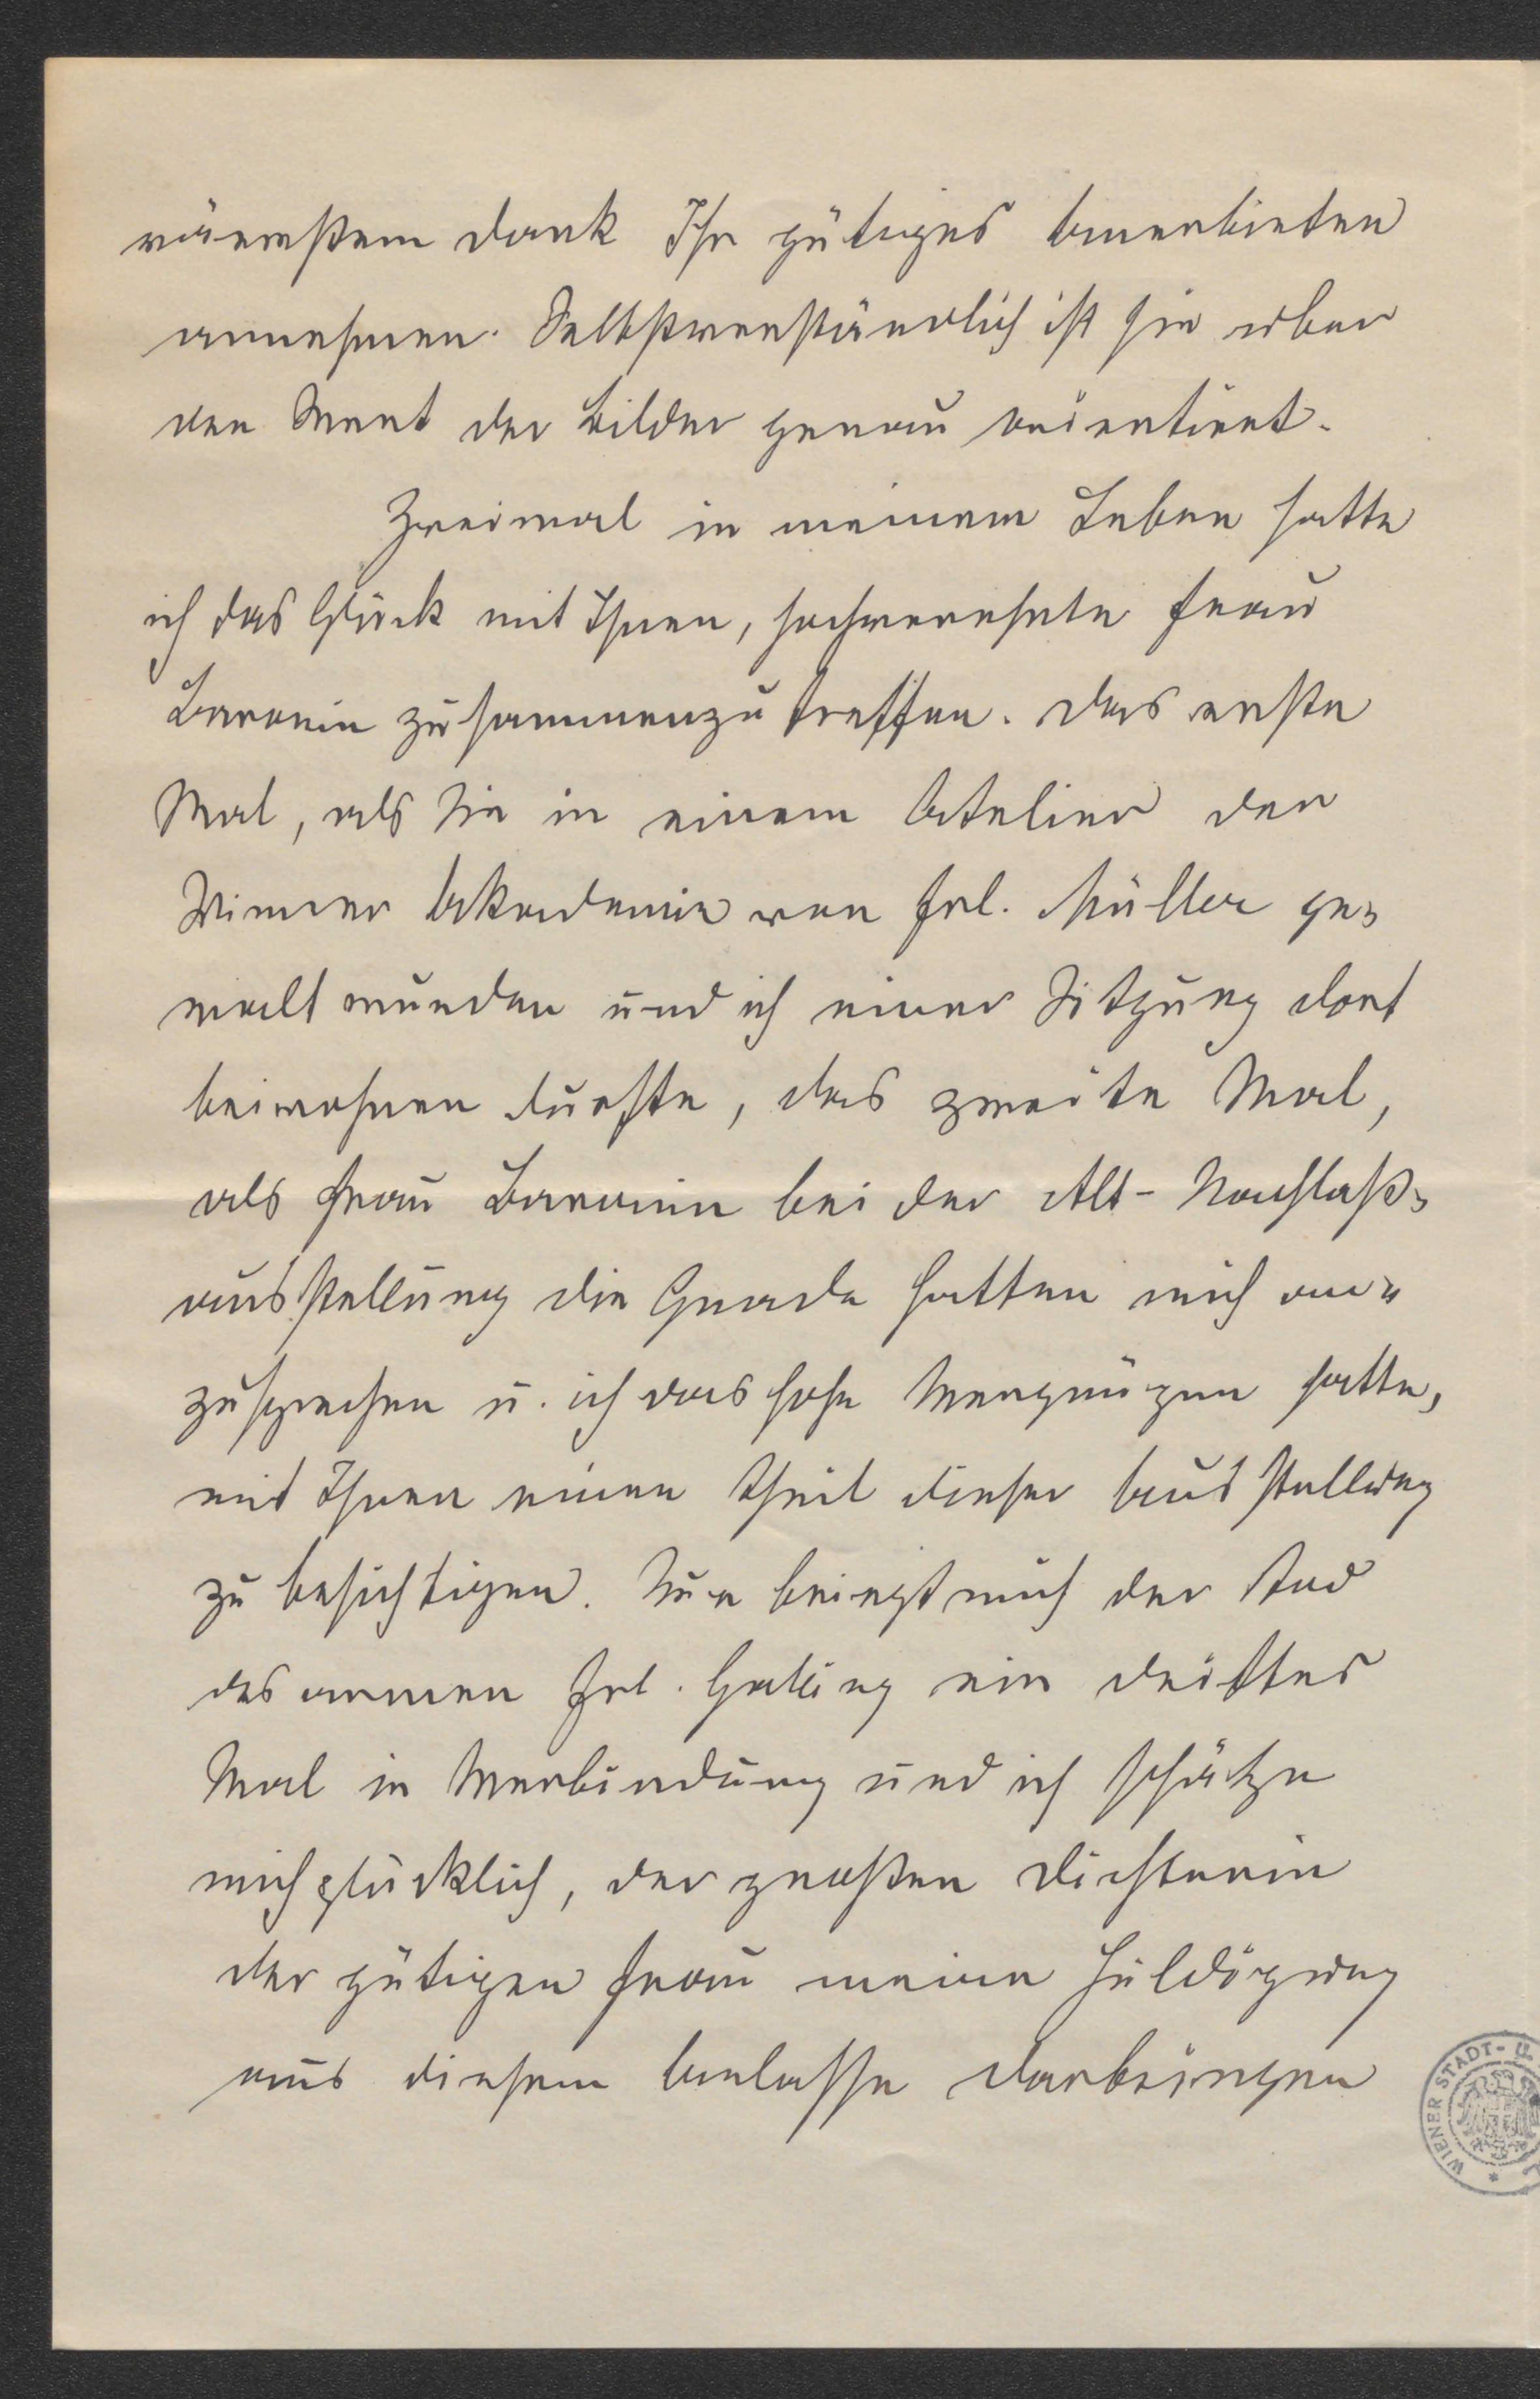 wärmstem Dank Ihr gütiges Anerbieten
annehmen. Selbstverständlich ist sie über
den Wert der Bilder genau orientirt.
Zweimal in meinem Leben hatte
ich das Glück mit Ihnen, hochverehrte Frau
Baronin zusammenzutreffen. Das erste
Mal, als Sie in einem Atelier der
Wiener Akademie von Frl. Müller ge=
malt wurden und ich einer Sitzung dort
beiwohnen durfte, das zweite Mal,
als Frau Baronin bei der Alt-Nachlaß=
ausstellung die Gnade hatten mich an=
zusprechen u. ich das hohe Vergnügen hatte,
mit Ihnen einen Theil dieser Ausstellung
zu besichtigen. Nun bringt mich der Tod
des armen Frl. ein drittes
Mal in Verbindung und ich schätze
mich glücklich, der großen Dichterin
der gütigen Frau meine Huldigung
aus diesem Anlasse darbringen
WIENER STADT- U.